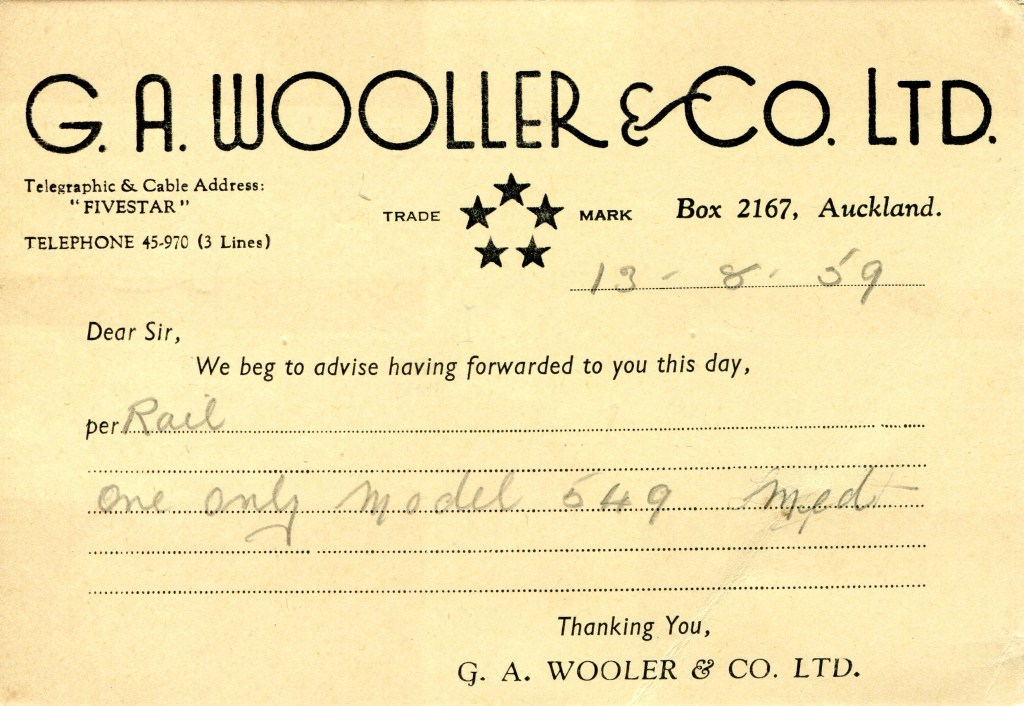 G. A. WOOLLER & CO. LTD.
Telegraphic & Cable Address:
"FIVESTAR"
TELEPHONE 45-970 (3 Lines)
TRADE MARK
Box 2167, Auckland.
13 - 8 - 59
Dear Sir,
We beg to advise having forwarded to you this day,
per Rail
one only Model 549
Thanking You,
G. A. WOOLER & CO. LTD.